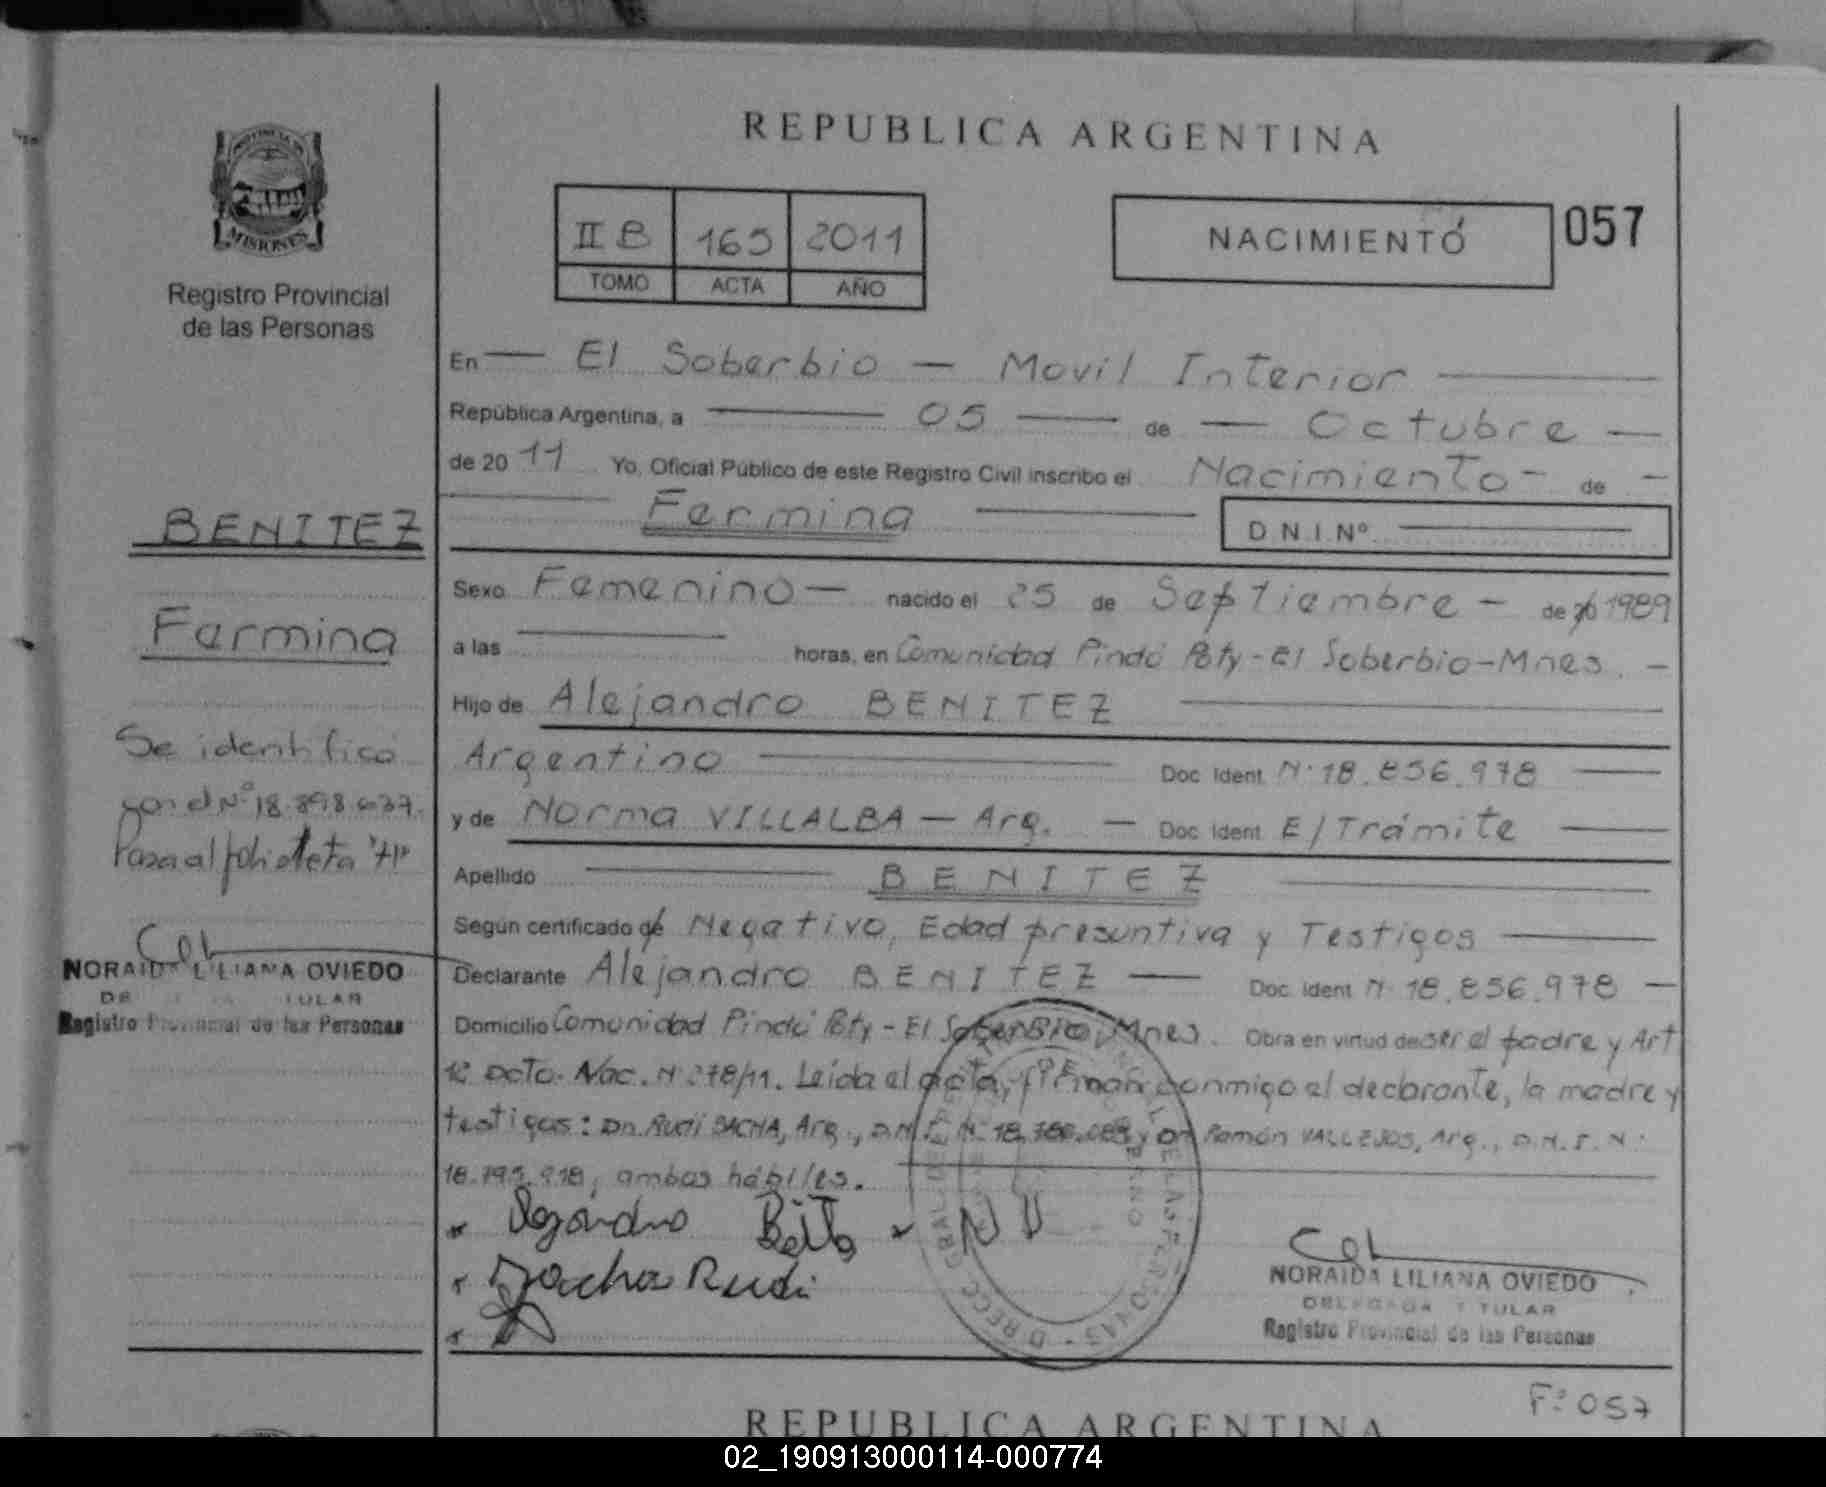 REPUBLICA ARGENTINA
PROVINCIA DE
MISIONES
Registro Provincial
de las Personas
II B 165 2011
TOMO ACTA AÑO
NACIMIENTO
057
En — El Soberbio — Movil Interior —
República Argentina, a — 05 — de — Octubre —
de 20 11 Yo, Oficial Público de este Registro Civil inscribo el Nacimiento - de -
Fermina
D.N.I.Nº
Sexo Femenino — nacido el 25 de Septiembre - de 20 1989
a las — horas, en Comunidad Pindó Poty - El Soberbio - Mnes. -
Hijo de Alejandro BENITEZ
Argentino — Doc. Ident. N· 18.856.978 —
y de Norma VILLALBA — Arg. — Doc. Ident. E/Trámite —
Apellido — BENITEZ —
Según certificado de Negativo, Edad presuntiva y Testigos —
Declarante Alejandro BENITEZ — Doc. Ident. N· 18.856.978 —
Domicilio Comunidad Pindó Poty - El Soberbio, Mnes. Obra en virtud de ser el padre y Art
1º Dcto. Nac. Nº 278/11. Leida el acta, firman conmigo el declarante, la madre y
testigos: Dn. Rudi SACHA, Arg., D.N.I. N· y Dn Ramón VALLEJOS, Arg., D.N.I. N·
ambos hábiles.
BENITEZ
Fermina
Se identificó
con el Nº 18.898.037.
Pasa al folio
NORAIDA LILIANA OVIEDO
Registro Provincial de las Personas
N V
Sacha Rudi
NORAIDA LILIANA OVIEDO
DELEGADA TITULAR
Registro Provincial de las Personas
Fº 057
REPUBLICA ARGENTINA
02_190913000114-000774